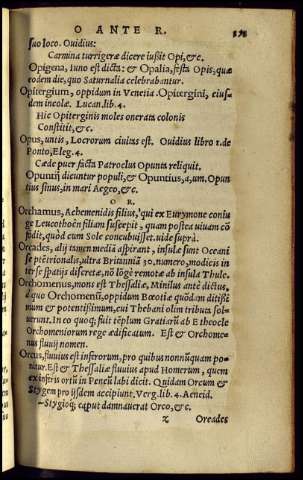 O ANTE R.
suo loco. Ouidius:
Carmina turrigeræ dicere iussit Opi, &c.
Opigena, Iuno est dicta: & Opalia, festa Opis, quæ
eodem die, quo Saturnalia celebrabantur.
Opitergium, oppidum in Venetia. Opitergini, eius
dem incolæ. Lucan.lib.4.
Hic Opiterginis moles onerata colonis
Constitit, &c.
Opus, untis, Locrorum ciuitas est. Ouidius libro 1.de
Ponto, Eleg.4.
Cæde puer facta Patroclus Opunta reliquit.
Opuntij dicuntur populi, & Opuntius, a, um. Opun
tius sinus, in mari Aegeo, &c.
O R.
Orchamus, Achemenidis filius, qui ex Eurymone coniu
ge Leucothoën filiam suscepit, quam postea uiuam cō
fodit, quòd eum Sole concubuisset. uide suprà.
Orcades, alij tamen media aspirant, insulæ sunt Oceani
septētrionalis, ultra Britanniā 30. numero, modicis in
ter se spatijs discretæ, nō lōgè remotæ ab insula Thule.
Orchomenus, mons est Thessaliæ, Minilus antè dictus,
à quo Orchomenū, oppidum Bœotiæ quōdam ditissi
mum & potentissimum, cui Thebani olim tributa sol-
uerunt. In eo quoq; fuit tēplum Gratiarū ab Etheocle
Orchomeniorum rege ædificatum. Est & Orchome-
nus fluuij nomen.
Orcus, fluuius est inferorum, pro quibus nonnūquam po-
nitur. Est & Thessaliæ fluuius apud Homerum, quem
ex infernis ortū in Peneū labi dicit. Quidam Orcum &
Stygem pro ijsdem accipiunt, Verg.lib.4. Aeneid.
Stygioq; caput damnauerat Orco, &c.
z Oreades